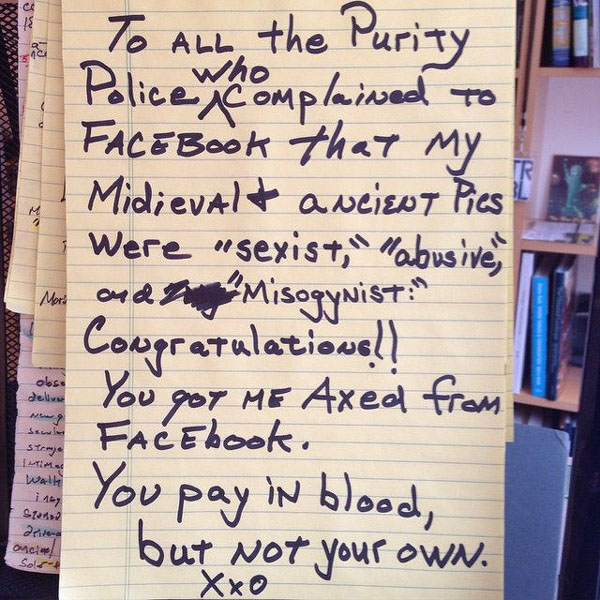 To ALL the Purity
Police who Complained to
FACEBOOK that my
Midieval & ancient Pics
Were "sexist," "abusive,"
and "Misogynist:"
Congratulations!!
You got ME Axed from
FACEbook.
You pay in blood,
but NOT your own.
XxO